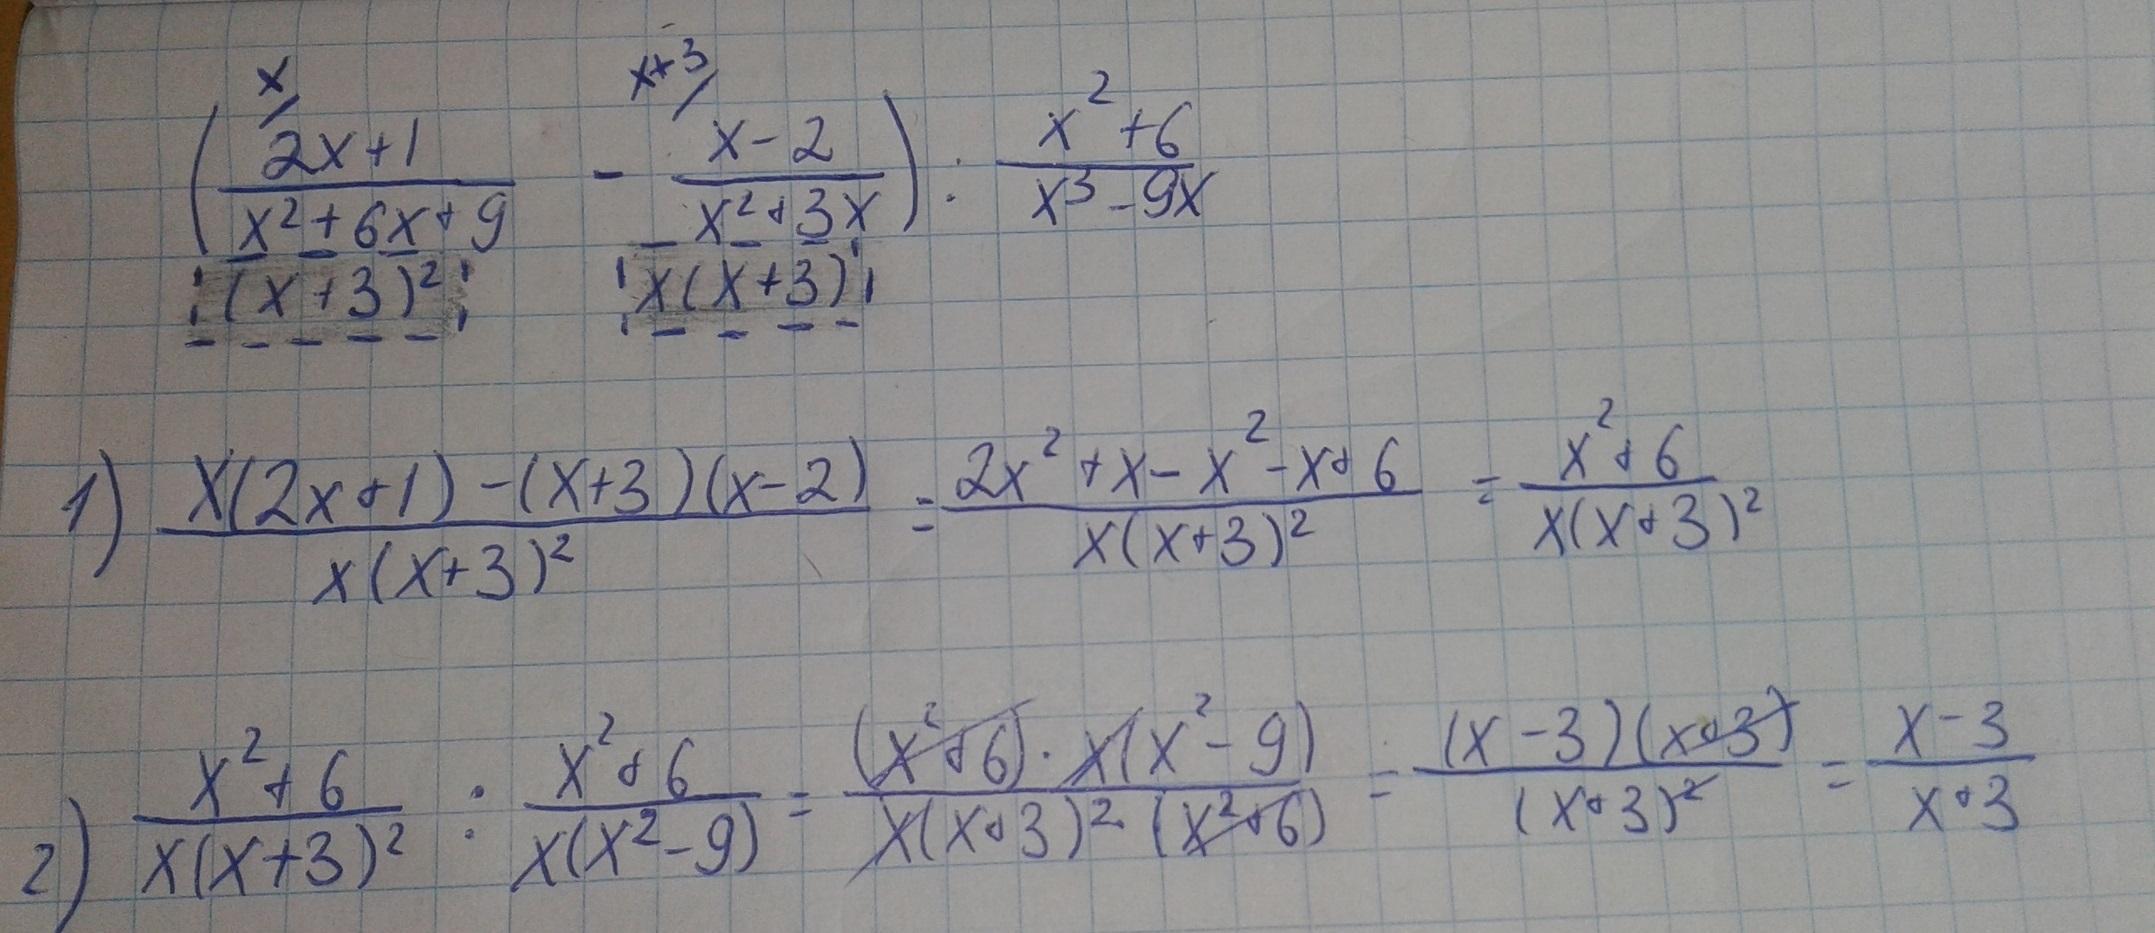 x/ x+3/
( (2x+1)/(x²+6x+9) - (x-2)/(x²+3x) ) : (x²+6)/(x³-9x)
(x+3)² x(x+3)
1) (x(2x+1)-(x+3)(x-2))/(x(x+3)²) = (2x²+x-x²-x+6)/(x(x+3)²) = (x²+6)/(x(x+3)²)
2) (x²+6)/(x(x+3)²) : (x²+6)/(x(x²-9)) = ((x²+6)·x(x²-9))/(x(x+3)²(x²+6)) = ((x-3)(x+3))/((x+3)²) = (x-3)/(x+3)